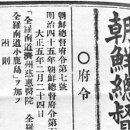 朝鮮總督
◎府令
朝鮮總督府令第七號
大正五年二月二十四
「全羅南道
全羅南道小鹿島」ヲ加フ
附則